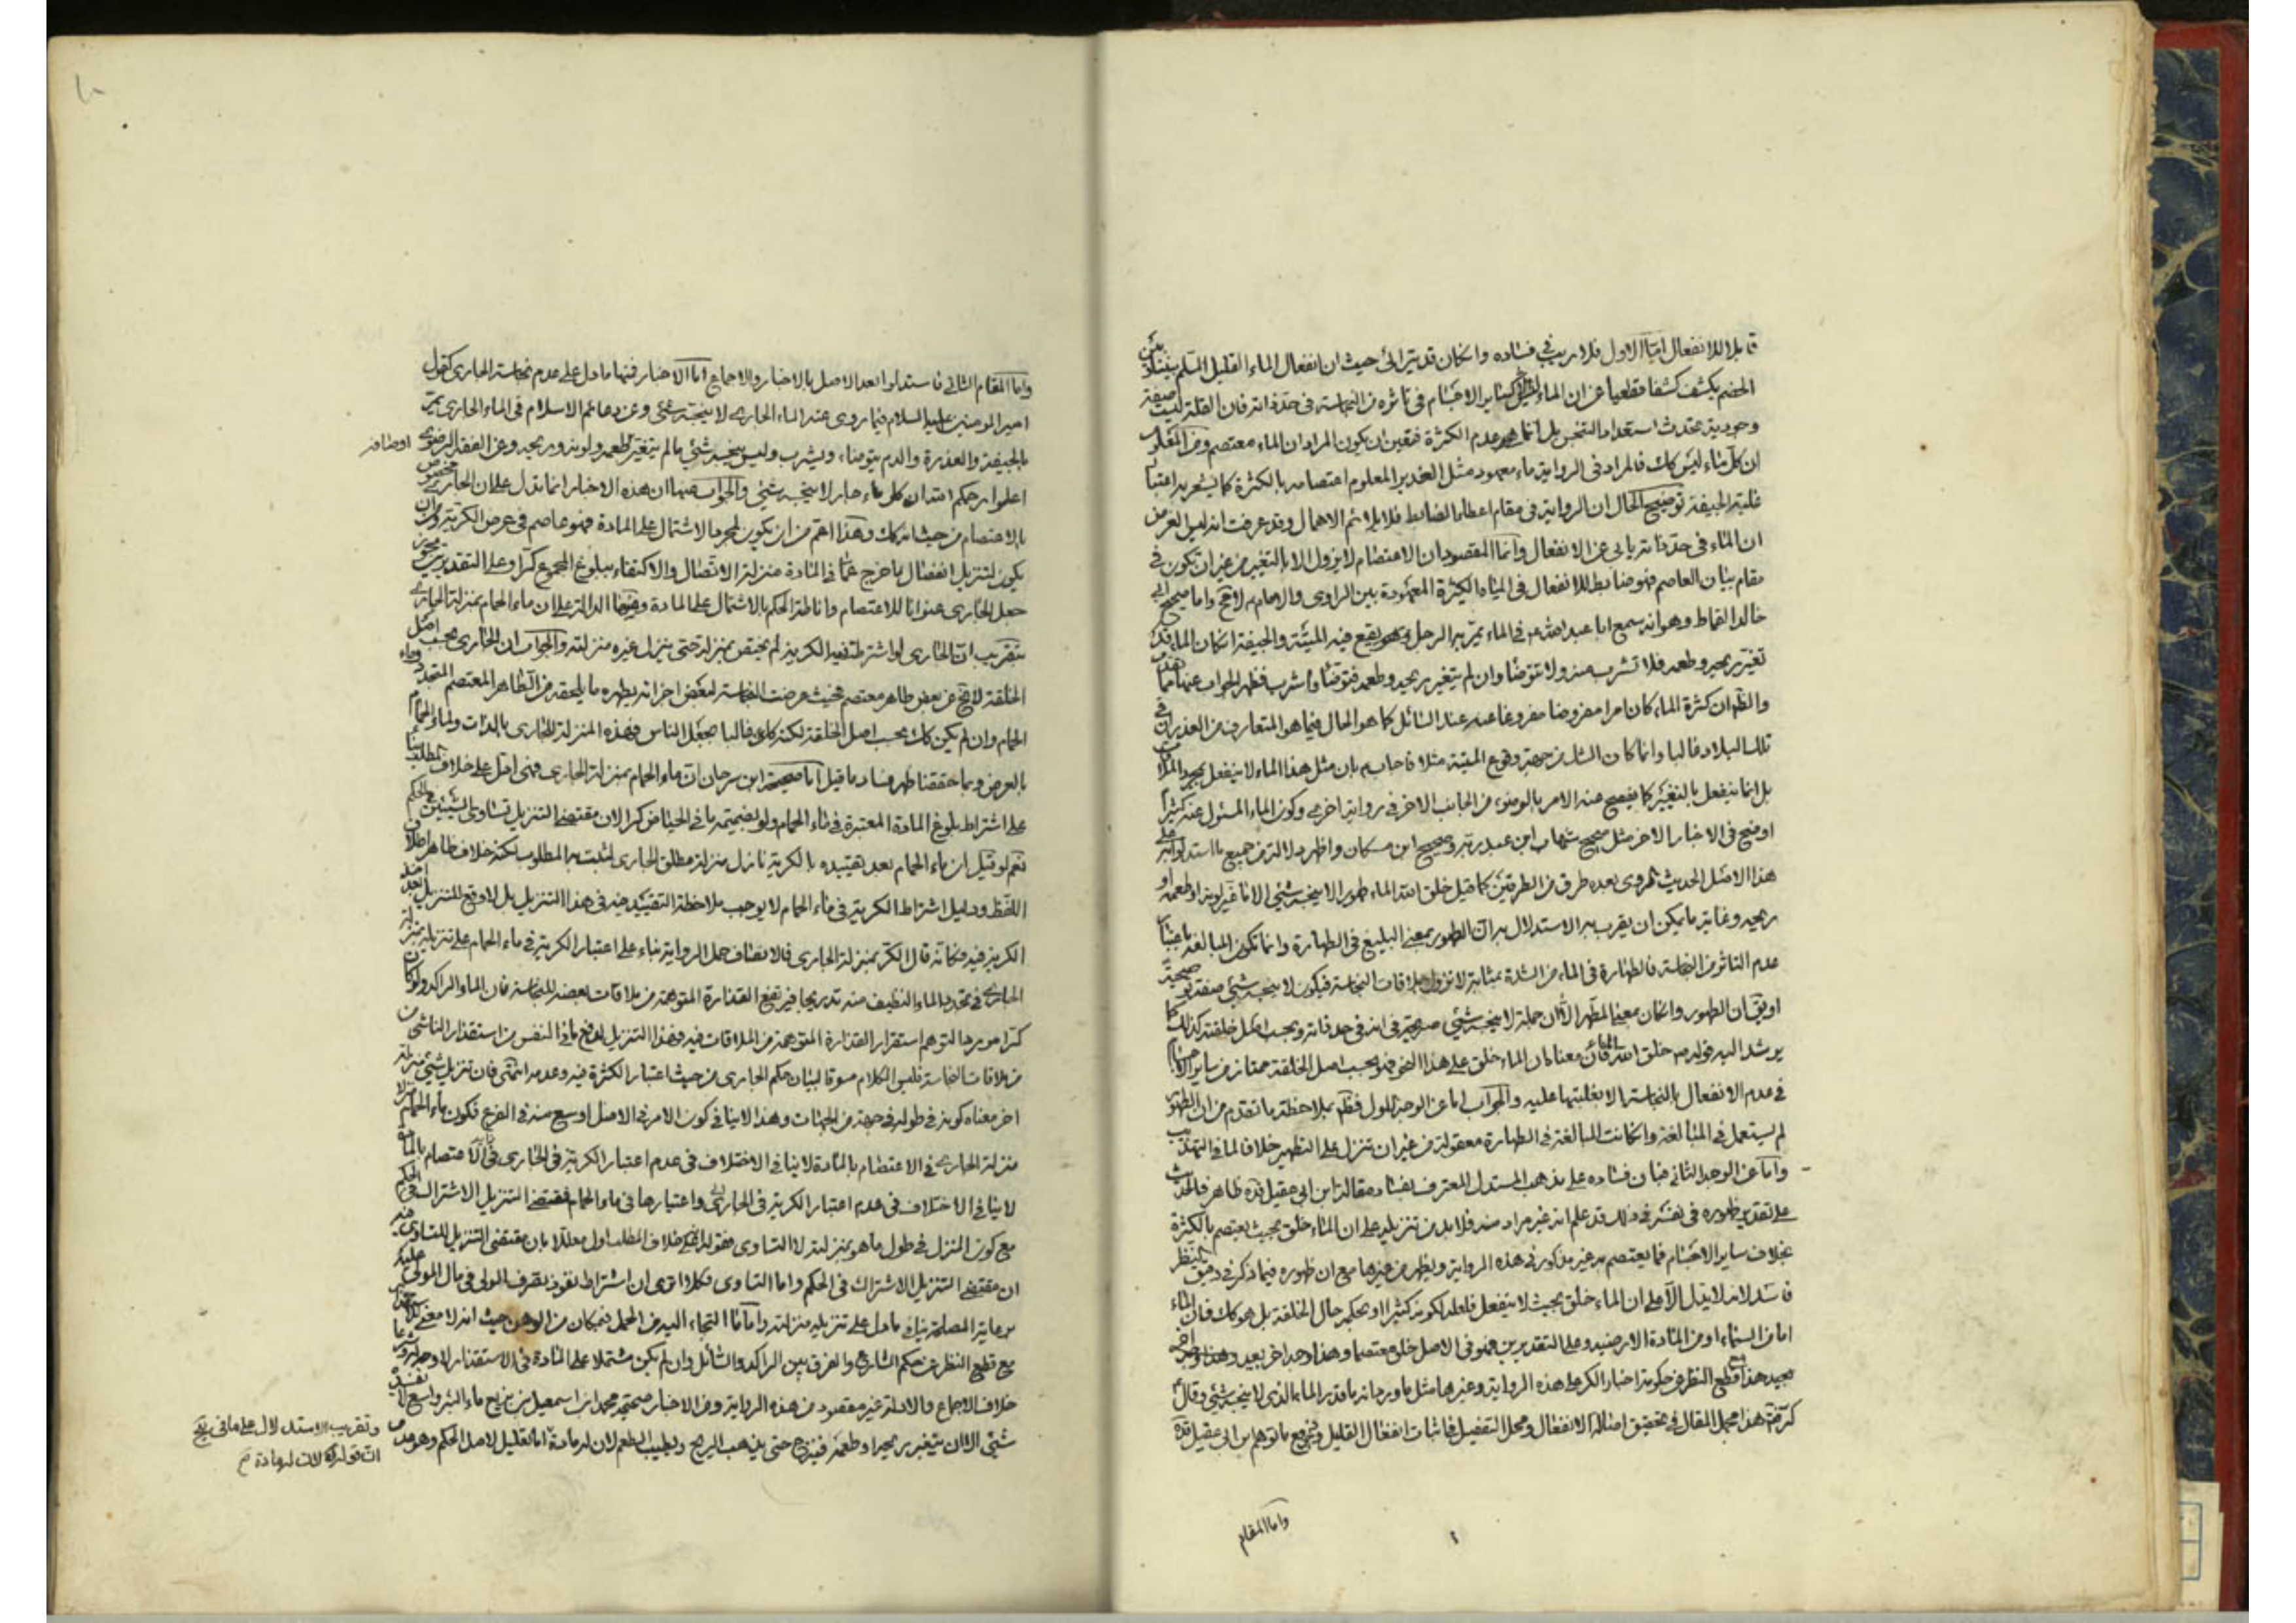 قابلا للانفعال اما الاول فلا ريب في فساده وانكان قد يترائى حيث ان انفعال الماء القليل المسلم بيننا وبين
الخصم يكشف كشفا قطعيا عن ان الماء كساير الاجسام في تاثره من النجاسة في حد ذاته فان القلة ليست صفة
وجودية تحدث استعداد التنجس بل انما هو عدم الكثرة فتعين ان يكون المراد ان الماء معتصم ومن المعلوم
ان كل ماء ليس كك فالمراد في الرواية ماء معهود مثل الغدير المعلوم اعتصامه بالكثرة كما يشعر به اعتبار
غلبة الجيفة توضيح الحال ان الرواية في مقام اعطاء الضابط فلا يلائم الاهمال وقد عرفت انه ليس الغرض
ان الماء في حد ذاته يابى عن الانفعال وانما المقصود ان الاعتصام لا يزول الا بالتغير من غير ان تكون في
مقام بيان العاصم فهو ضابط للانفعال في المياه الكثيرة المعهودة بين الراوي والامام واما صحيح ابي
خالد القماط وهو انه سمع ابا عبد الله ع في الماء يمر به الرجل وهو يقع فيه الميتة والجيفة انكان الماء قد
تغير ريحه وطعمه فلا تشرب منه ولا تتوضا وان لم يتغير ريحه وطعمه فتوضا واشرب فظهر الجواب عنها مما
والظ ان كثرة الماء كان امرا مفروضا مفروغا عنه عند السائل كما هو الحال فيما هو المتعارف من الغدير ان في
تلك البلاد غالبا وانما كان الشك من جهة وقوع الميتة مثلا فاجاب بان مثل هذا الماء لا ينفعل بمجرد الملاقات
بل انما ينفعل بالتغير كما يفصح عنه الامر بالوضوء من الجانب الاخر في رواية اخرى وكون الماء المسئول عنه كثيرا
اوضح في الاخبار الاخر مثل صحيح شهاب ابن عبد ربه وصحيح ابن مسكان واظهر دلالة من جميع ما استدلوا به على
هذا الاصل الحديث المروي بعدة طرق من الطرفين كما قيل خلق الله الماء طهورا لا ينجسه شيء الا ما غير لونه او طعمه او
ريحه وغاية ما يمكن ان يقرب به الاستدلال به ان الطهور بمعنى البليغ في الطهارة وانما تكون المبالغة باعتبار
عدم التاثر من النجاسة فالطهارة في الماء من الشدة بمثابة لا تزول بملاقات النجاسة فيكون لا ينجسه شيء صفة توضيحية
او يق ان الطهور وانكان بمعنى المطهر الا ان جملة لا ينجسه شيء صريحة في انه في حد ذاته وبحسب اصل خلقته كذلك كما
يرشد اليه قوله ص خلق الله الماء فان معناه ان الماء خلق على هذا النحو فهو بحسب اصل الخلقة ممتاز من ساير الاجسام
في عدم الانفعال بالنجاسة الا بغلبتها عليه والجواب اما عن الوجه الاول فظهر بملاحظة ما تقدم من ان الطهور
لم يستعمل في المبالغة وانكانت المبالغة في الطهارة معقولة من غير ان تنزل على التطهير خلافا لما في التهذيب
واما عن الوجه الثاني فبان فساده على مذهب المستدل المعترف بفساد مقالة ابن ابي عقيل قده ظاهر فالحديث
على تقدير ظهوره في نفسه في ذلك قد علم انه غير مراد منه فلا بد من تنزيله على ان الماء خلق بحيث يعتصم بالكثرة
بخلاف ساير الاجسام فما يعتصم به غير مذكور في هذه الرواية ويظهر من غيرها مع ان ظهوره فيما ذكر في دقيق النظر
فاسد لانه لا يدل الا على ان الماء خلق بحيث لا ينفعل فلعله لكونه كثيرا او بحكمه حال الخلقة بل هو كك فان الماء
اما من السماء او من المادة الارضية وعلى التقديرين فهو في الاصل خلق معتصما وهذا وجه اخر
بعيد هذا مع قطع النظر عن حكومة اخبار الكر على هذه الرواية وغيرها مثل ما ورد انه ما قدر الماء الذي لا ينجسه شيء وقال
كر فتم هذا مجمل المقال في تحقيق اصالة الانفعال ومحل التفصيل في اثبات انفعال القليل ودفع ما توهم ابن ابي عقيل قده
واما المقام
واما المقام الثاني فاستدلوا بعد الاصل بالاخبار والاجماع اما الاخبار فمنها ما دل على عدم نجاسة الجاري كقول
امير المومنين عليه السلام فيما روى عنه الماء الجاري لا ينجسه شيء وعن دعائم الاسلام في الماء الجاري يمر
بالجيفة والعذرة والدم يتوضاء ويشرب وليس ينجسه شيء ما لم يتغير طعمه ولونه وريحه وعن الفقه الرضوي
اوصافه
اعلموا رحمكم الله ان كل ماء جار لا ينجسه شيء والجواب عنها ان هذه الاخبار انما تدل على ان الجاري مخصوص
بالاعتصام من حيث انه كك وهذا اعم من ان يكون لمجرد الاشتمال على المادة فهو عاصم في عرض الكرية وان
يكون لتنزيل انفصال ما خرج عما في المادة منزلة الاتصال والاكتفاء ببلوغ المجموع كرا وعلى التقديرين يجوز
جعل الجاري عنوانا للاعتصام واناطة الحكم بالاشتمال على المادة ومنها الدالة على ان ماء الحمام بمنزلة الجاري
بتقريب ان الجاري لو اشترط فيه الكرية لم يختص بمنزلة حتى ينزل غيره منزلته والجواب ان الجاري بحسب اصل
الخلقة لا يخ عن بعض طاهر معتصم فحيث عرضت النجاسة لبعض اجزائه يطهره ما يلحقه من الطاهر المعتصم المتجدد وماء
الحمام وان لم يكن كك بحسب اصل الخلقة لكنه كك غالبا بجعل الناس فهذه المنزلة للجاري بالذات ولماء الحمام
بالعرض وبما حققنا ظهر فساد ما قيل اما صحيحة ابن سرحان ان ماء الحمام بمنزلة الجاري فهي ادل على خلاف المطلب بناء
على اشتراط بلوغ المادة المعتبرة في ماء الحمام ولو بضميمة ما في الحياض كرا لان مقتضى التنزيل تساوي الشيئين في الحكم
نعم لو قيل ان ماء الحمام بعد تقييده بالكرية نازل منزلة مطلق الجاري لثبت به المطلوب لكنه خلاف ظاهر اطلاق
اللفظ ودليل اشتراط الكرية في ماء الحمام لا يوجب ملاحظة التقييد فيه في هذا التنزيل بل لا وقع للتنزيل بعد اخذ
الكرية فيه فكانه قال الكر بمنزلة الجاري فالانصاف حمل الرواية بناء على اعتبار الكرية في ماء الحمام على تنزيله منزلة
الجاري في تجدد الماء النظيف منه تدريجا فيرتفع القذارة المتوهمة من ملاقات بعضه للنجاسة فان الماء الراكد ولو كان
كرا مورد لتوهم استقرار القذارة المتوهمة من الملاقات فيه وهذا التنزيل لدفع ما في النفس من استقذار الناشي من
ملاقات النجاسة فليس الكلام مسوقا لبيان حكم الجاري من حيث اعتبار الكثرة فيه وعدمه انتهى فان تنزيل شيء منزلة
اخر معناه كونه في طوله في جهة من الجهات وهذا لا ينافي كون الامر في الاصل اوسع منه في الفرع فكون ماء الحمام
منزلة الجاري في الاعتصام بالمادة لا ينافي الاختلاف في عدم اعتبار الكرية في الجاري
لا ينافي الاختلاف في عدم اعتبار الكرية في الجاري واعتبارها في ماء الحمام فمقتضى التنزيل الاشتراك في الحكم
مع كون المنزل في طول ما هو بمنزلته لا التساوي فقوله خلاف المطلب اول معللا بان مقتضى التنزيل التساوي فيه
ان مقتضى التنزيل الاشتراك في الحكم واما التساوي فكلا الا ترى ان اشتراط نفوذ تصرف الولي في مال المولى عليه
برعاية المصلحة ينافي ما دل على تنزيله منزلته واما ما التجاء اليه من الحمل فبمكان من الوهن حيث انه لا معنى
مع قطع النظر عن حكم الشارع والفرق بين الراكد والسائل وان لم يكن مشتملا على المادة في الاستقذار لا وجه له
خلاف الاجماع والادلة غير مقصود من هذه الرواية ومن الاخبار صحيحة محمد ابن اسمعيل ابن بزيع ماء البئر واسع لا يفسده
شيء الا ان يتغير ريحه او طعمه فينزح حتى يذهب الريح ويطيب الطعم لان له مادة اما تقليل لاصل الحكم وهو
وتقريب الاستدلال على ما في
ان قوله لان له مادة